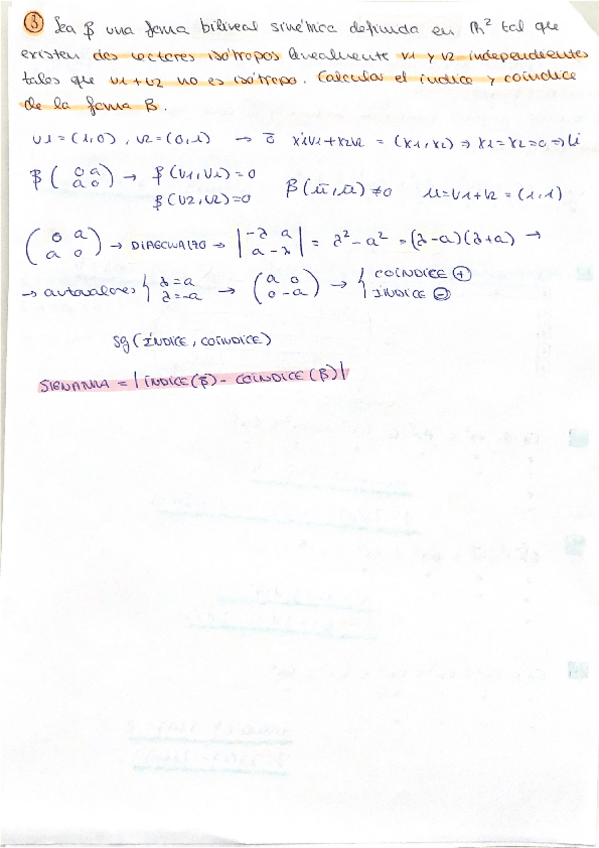 ③ Sea β una forma bilineal simétrica definida en ℝ² tal que
existen dos vectores isótropos linealmente v1 y v2 independientes
tales que v1+v2 no es isótropo. Calcular el índice y coíndice
de la forma B.
v1 = (1,0) , v2 = (0,1) → 0̄ x1v1+x2v2 = (x1,x2) ⇒ x1=x2=0 ⇒ li
β (0 a / a 0) → β(v1,v1)=0 β(ū,ū) ≠0 u=v1+v2 = (1,1)
β(v2,v2)=0
(0 a / a 0) → DIAGONALIZO → |-λ a / a -λ| = λ²-a² = (λ-a)(λ+a) →
→ autovalores { λ=a / λ=-a → (a 0 / 0 -a) → { COÍNDICE ⊕ / ÍNDICE ⊖
Sg (ÍNDICE, COÍNDICE)
SIGNATURA = | ÍNDICE(β) - COÍNDICE(β)|